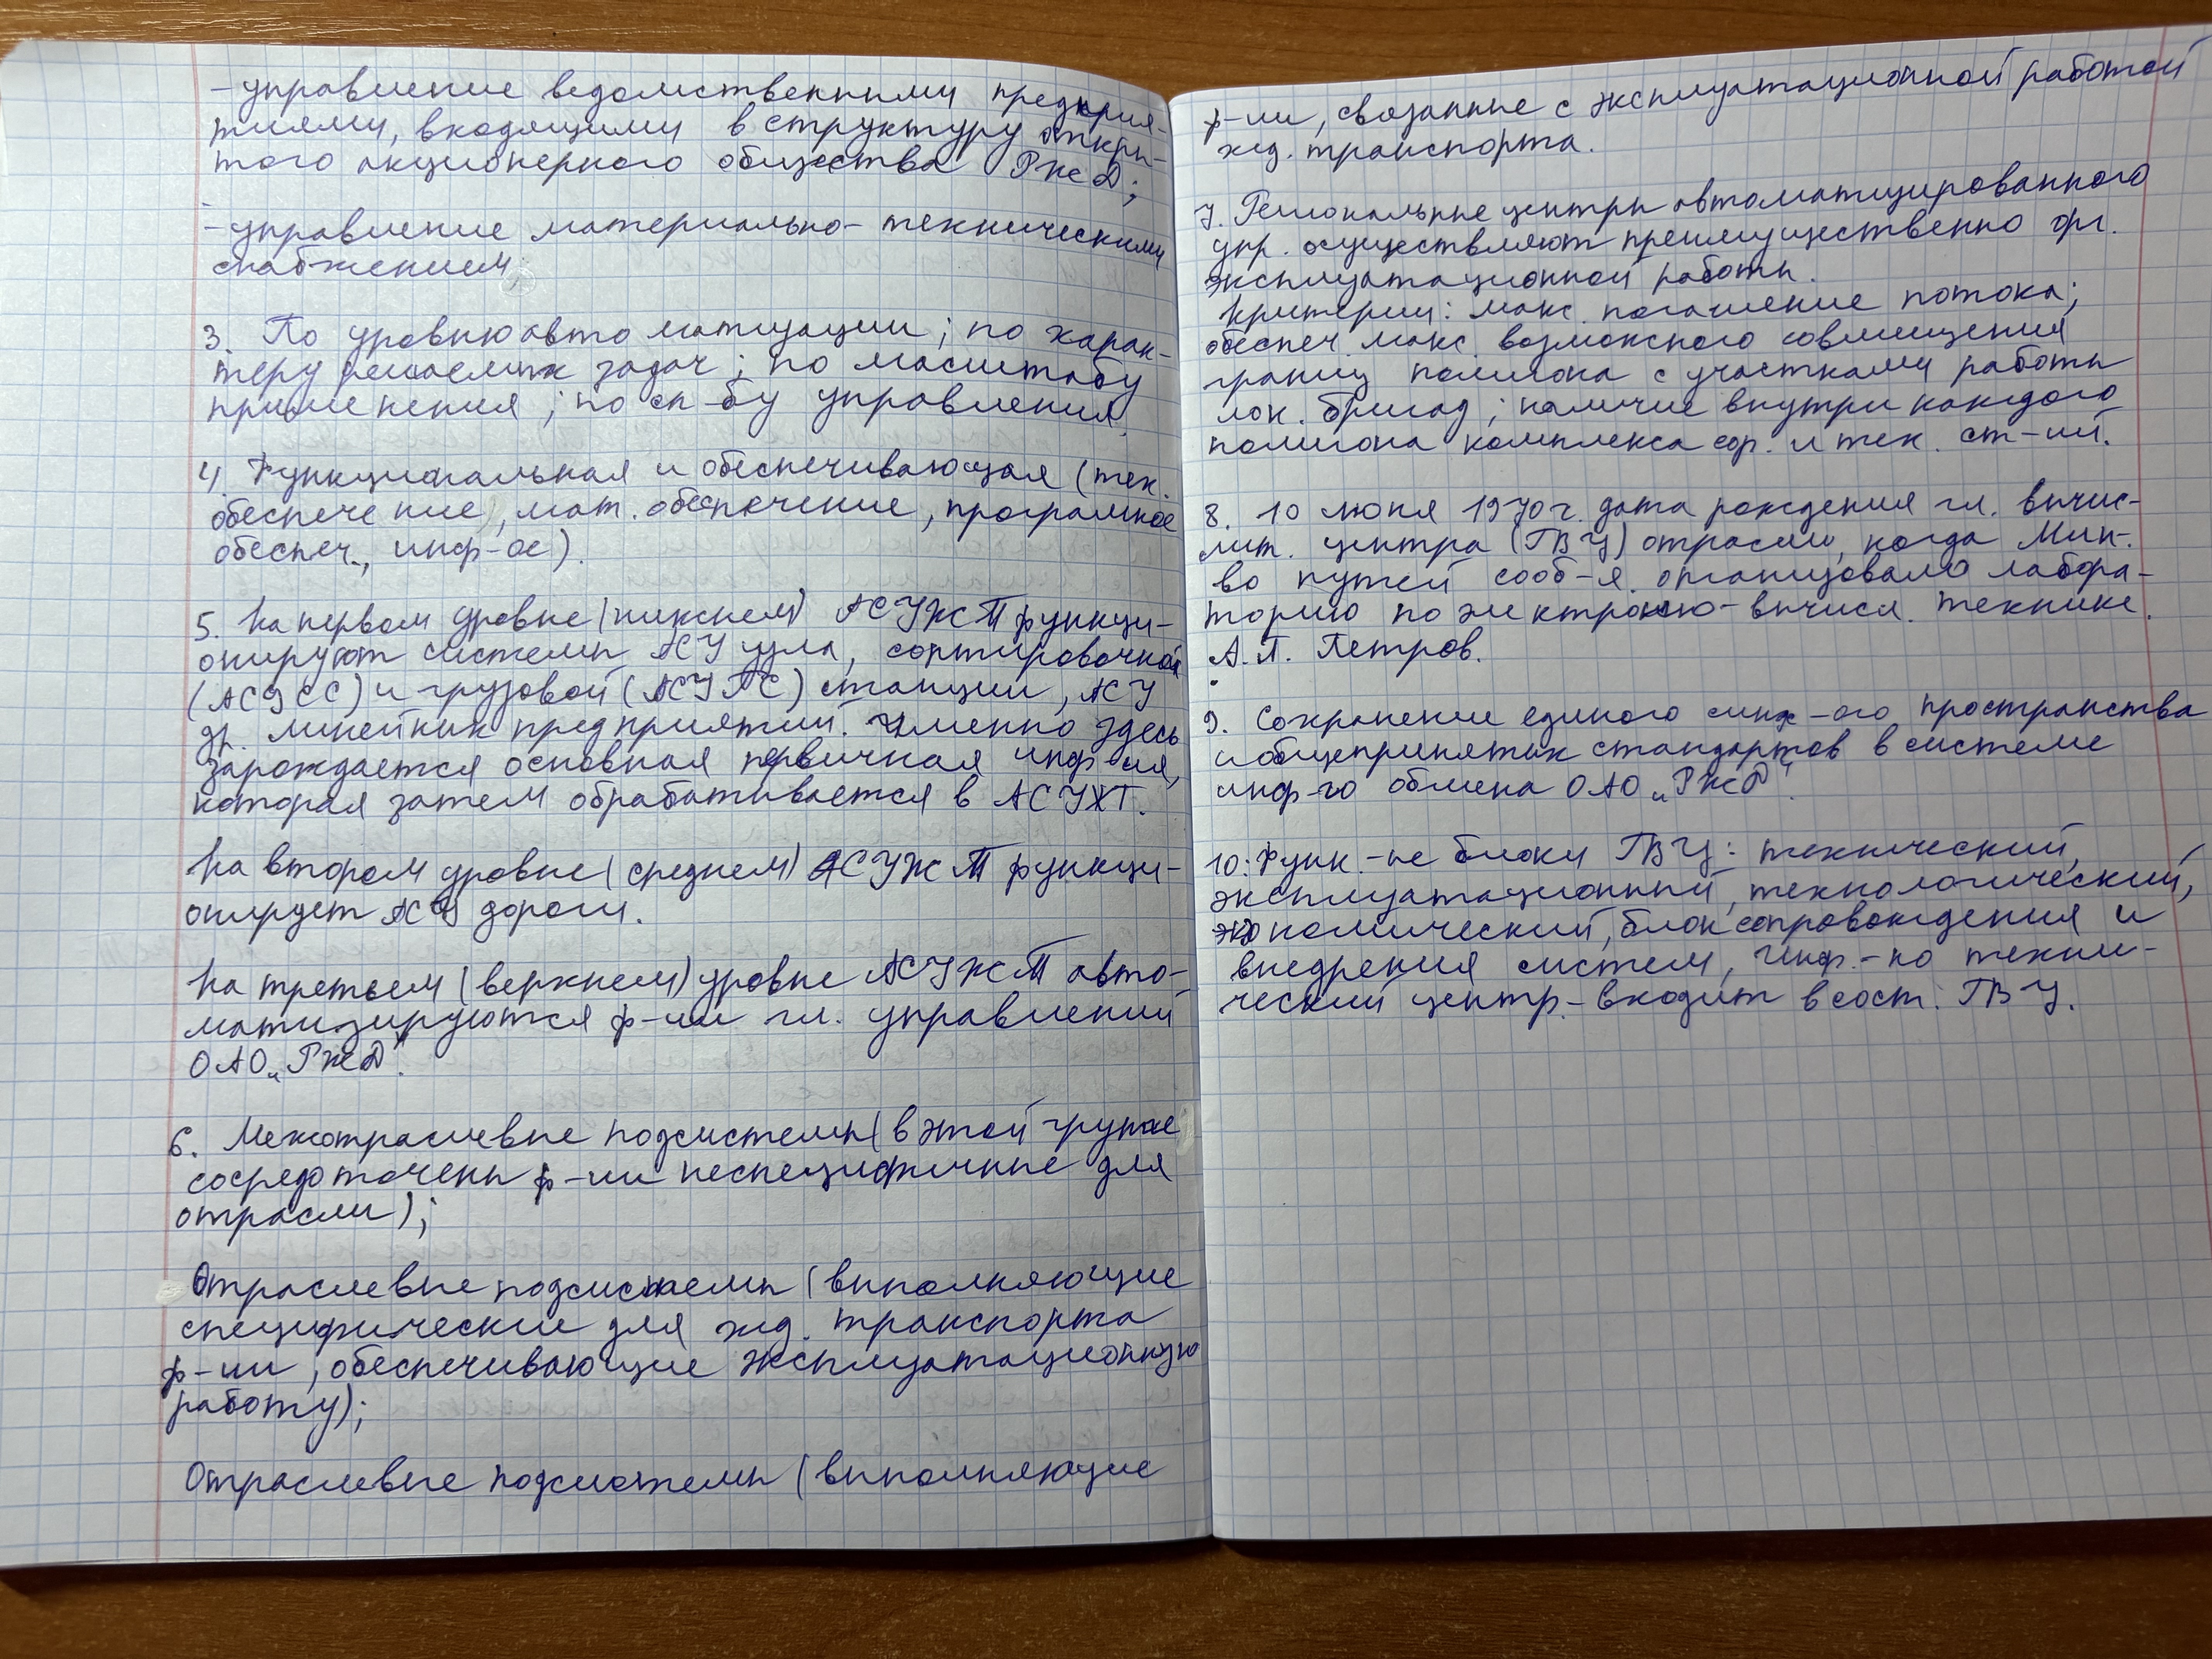 - управление ведомственными предприя-
тиями, входящими в структуру откры-
того акционерного общества РЖД;
- управление материально-техническими
снабжением;
3. По уровню автоматизации; по харак-
теру решаемых задач; по масштабу
применения; по сп-бу управления.
4. Функциональная и обеспечивающая (тех.
обеспечение, мат. обеспечение, програмное
обеспеч., инф-ое).
5. На первом уровне (нижнем) АСУЖТ функци-
онируют системы АСУ узла, сортировочной
(АСУСС) и грузовой (АСУГС) станции, АСУ
др. линейных предприятий. Именно здесь
зарождается основная первичная инф-ия,
которая затем обрабатывается в АСУЖТ.
На втором уровне (среднем) АСУЖТ функци-
онирует АСУ дороги.
На третьем (верхнем) уровне АСУЖТ авто-
матизируются ф-ии гл. управлений
ОАО „РЖД".
6. Межотраслевые подсистемы (в этой группе
сосредоточены ф-ии неспецифичные для
отрасли);
Отраслевые подсистемы (выполняющие
специфические для жд. транспорта
ф-ии, обеспечивающие эксплуатационную
работу);
Отраслевые подсистемы (выполняющие
ф-ии, связанные с эксплуатационной работой
жд. транспорта.
7. Региональные центры автоматизированного
упр. осуществляют преимущественно орг.
эксплуатационной работы.
Критерии: макс. погашение потока;
обеспеч. макс. возможного совмещения
границ полигона с участками работы
лок. бригад; наличие внутри каждого
полигона комплекса сор. и тех. ст-ий.
8. 10 июня 1970 г. дата рождения гл. вычис-
лит. центра (ГВЦ) отрасли, когда Мин-
во путей сооб-я организовало лабора-
торию по электронно-вычисл. технике.
А.П. Петров.
9. Сохранение единого инф-ого пространства
и общепринятых стандартов в системе
инф-го обмена ОАО „РЖД".
10. Функ.-ые блоки ГВЦ: технический,
эксплуатационный, технологический,
экономический, блок сопровождения и
внедрения систем, Инф.-но техни-
ческий центр - входит в сост. ГВЦ.